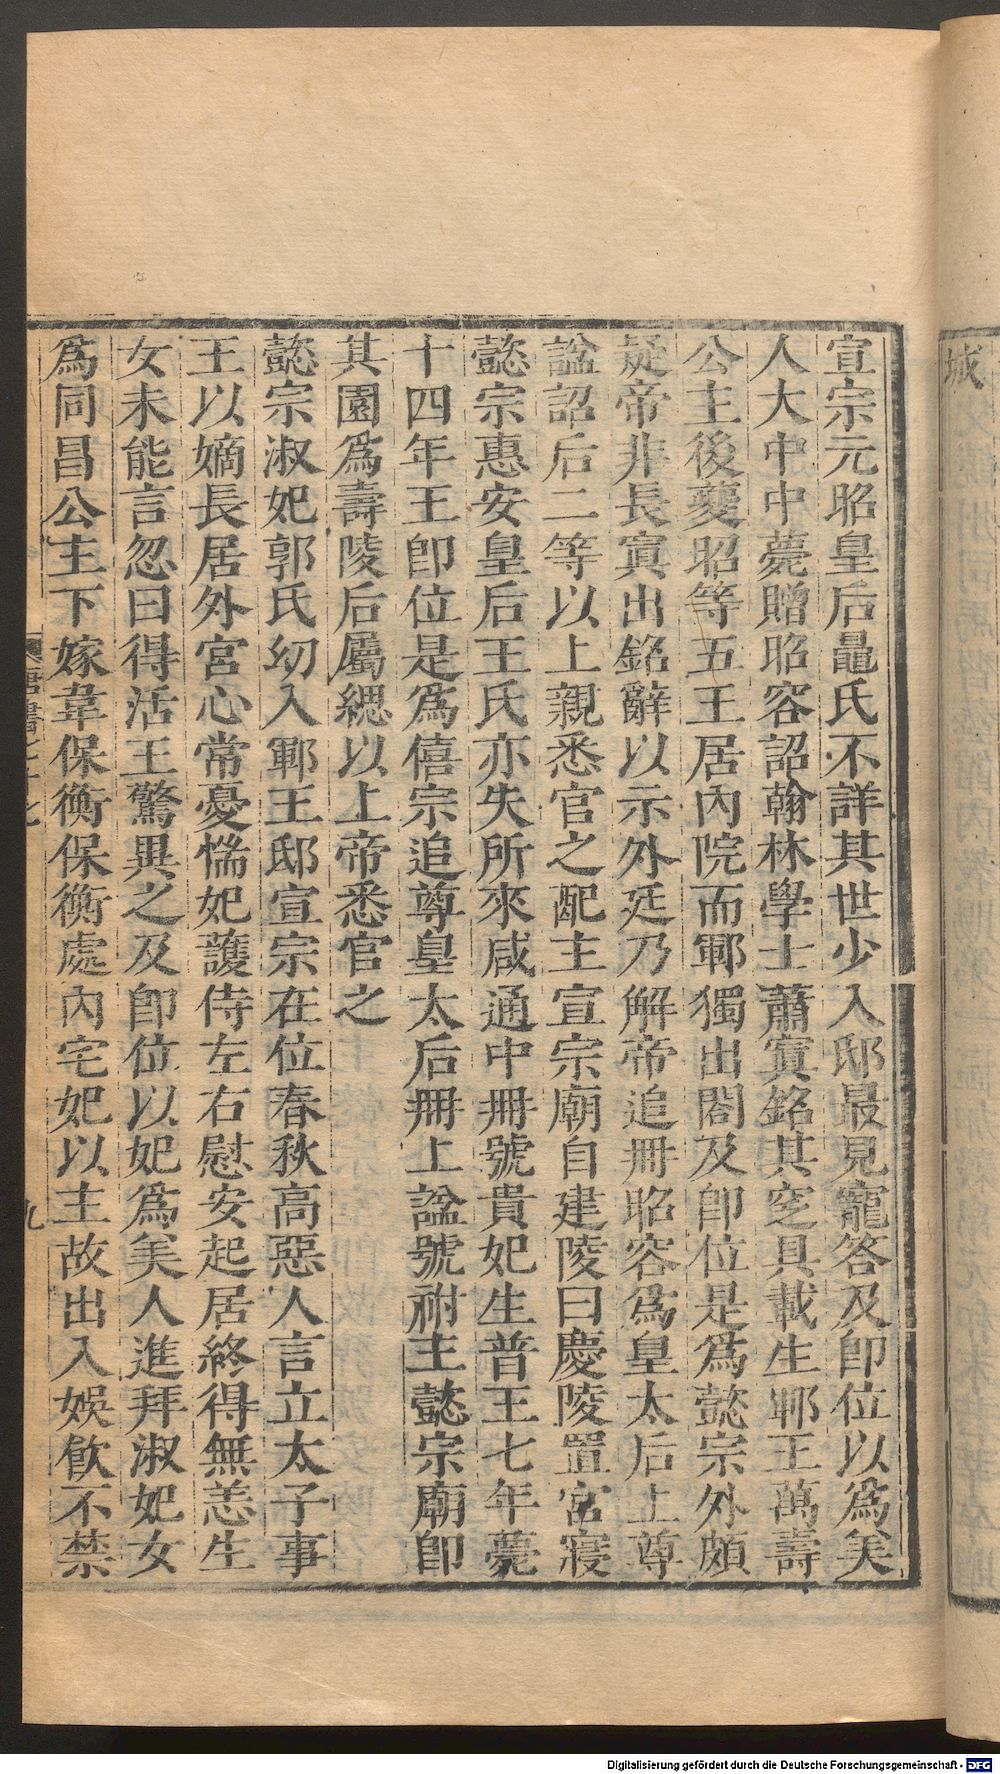 宣宗元昭皇后鼂氏不詳其世少入邸最見寵答及即位以爲美
人大中中薨贈昭容詔翰林學士蕭寘銘其窆具載生鄆王萬壽
公主後夔昭等五王居內院而鄆獨出閤及即位是爲懿宗外頗
疑帝非長寘出銘辭以示外廷乃解帝追冊昭容爲皇太后上尊
諡詔后二等以上親悉官之配主宣宗廟自建陵曰慶陵置宮寢
懿宗惠安皇后王氏亦失所來咸通中冊號貴妃生普王七年薨
十四年王即位是爲僖宗追尊皇太后冊上諡號祔主懿宗廟即
其園爲壽陵后屬緦以上帝悉官之
懿宗淑妃郭氏幼入鄆王邸宣宗在位春秋高惡人言立太子事
王以嫡長居外宮心常憂惴妃護侍左右慰安起居終得無恙生
女未能言忽曰得活王驚異之及即位以妃爲美人進拜淑妃女
爲同昌公主下嫁韋保衡保衡處內宅妃以主故出入娛飮不禁
唐書七十七
九
城
Digitalisierung gefördert durch die Deutsche Forschungsgemeinschaft - DFG